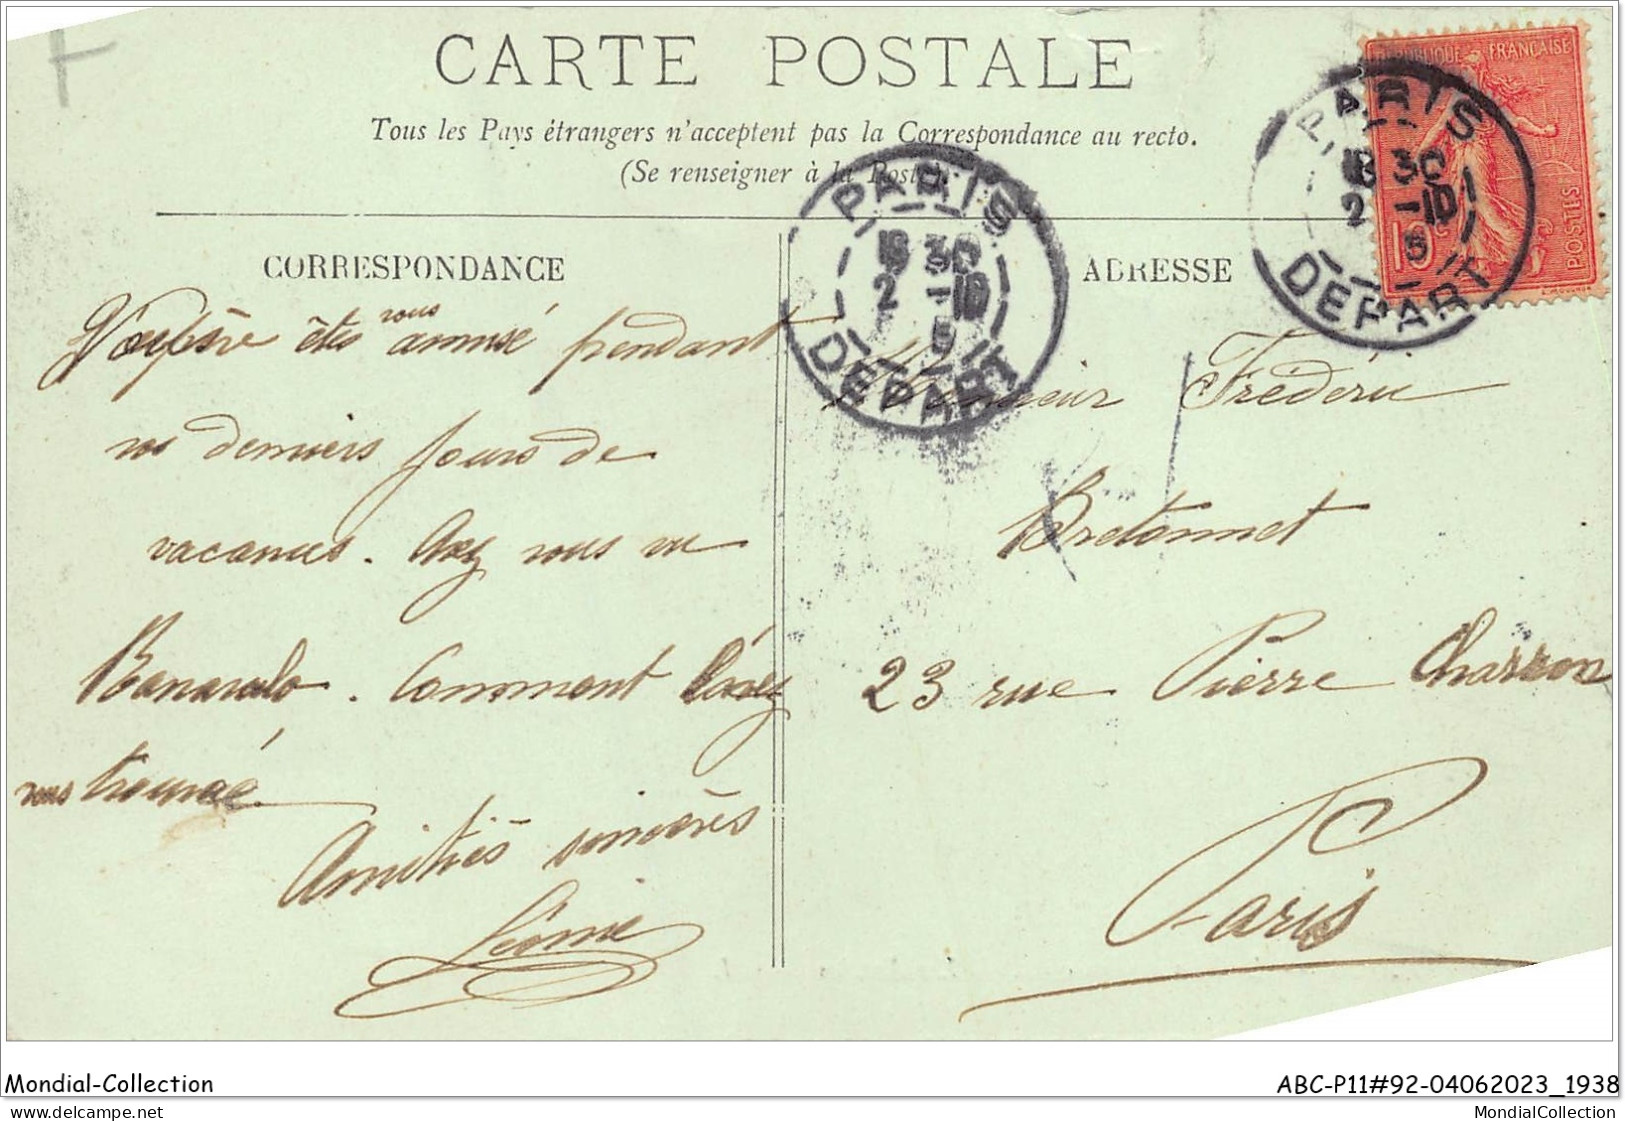 CARTE POSTALE
Tous les Pays étrangers n'acceptent pas la Correspondance au recto.
(Se renseigner à la Poste).
RÉPUBLIQUE FRANÇAISE
POSTES
PARIS
18 30
2 -10
5
DEPART
PARIS
18 30
2 -10
5
DEPART
CORRESPONDANCE
êtes vous amusé pendant
vos derniers jours de
vacances. Avez vous vu
Comment
vous trouvé
Amitiés sincères
Léonie
ADRESSE
Monsieur Frédéric
Bretonnet
23 rue Pierre Charron
Paris
Mondial-Collection
ABC-P11#92-04062023_1938
www.delcampe.net
MondialCollection